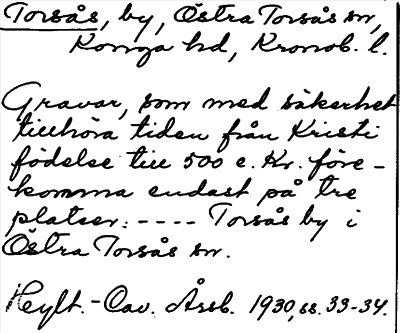 Torsås, by, Östra Torsås sn,
Konga hd, Kronob. l.
Gravar, som med säkerhet
tillhöra tiden från Kristi
födelse till 500 e. Kr. före-
komma endast på tre
platser: ---- Torsås by i
Östra Torsås sn.
Hylt.-Cav. Årsb. 1930, ss. 33-34.